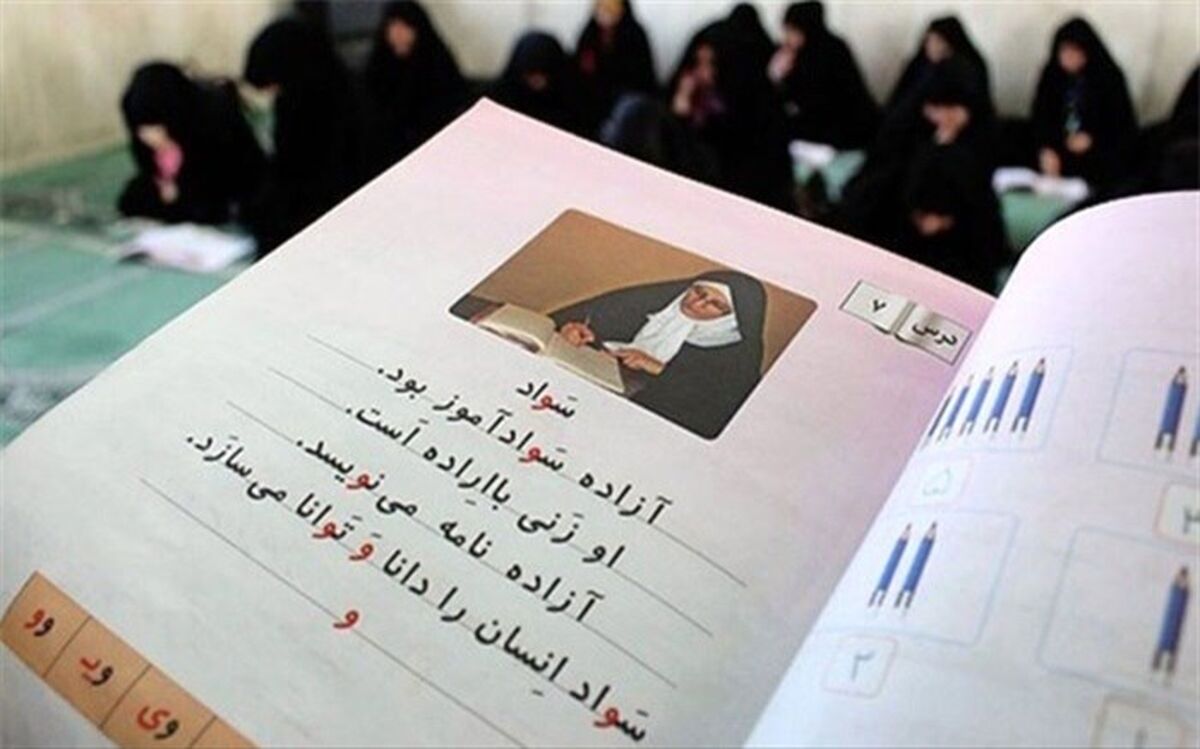 درس ۷
سَواد
آزاده سَوادآموز بود.
او زَنی بااِراده اَست.
آزاده نامه می‌نویسد.
سَواد اِنسان را دانا وَ تَوانا می‌سازَد.
و
وو ویـ وی
۵
۲